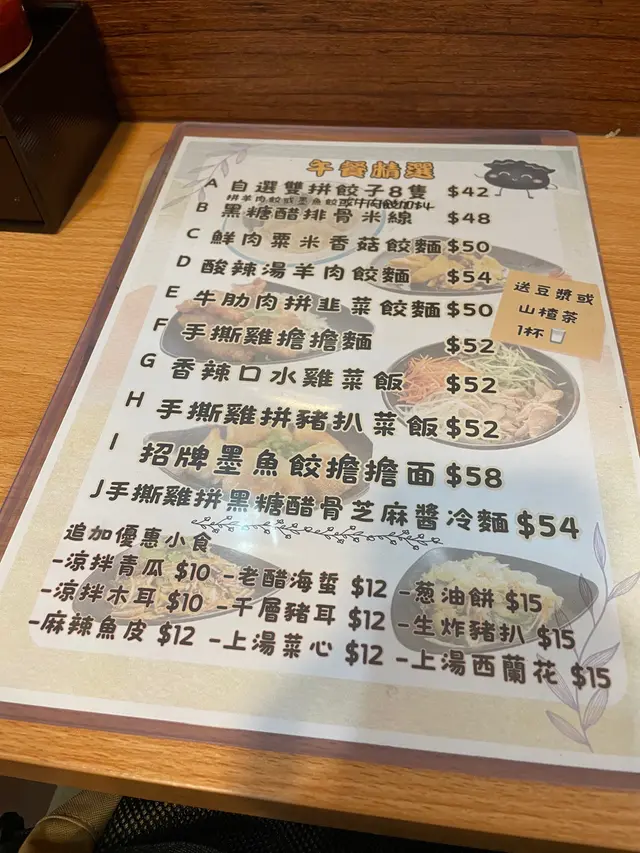 午餐精選
A 自選雙拼餃子8隻 $42
拼羊肉餃或墨魚餃或牛肉餃加
B 黑糖醋排骨米線 $48
C 鮮肉粟米香菇餃麵 $50
D 酸辣湯羊肉餃麵 $54
E 牛肋肉拼韭菜餃麵 $50
F 手撕雞擔擔麵 $52
G 香辣口水雞菜飯 $52
H 手撕雞拼豬扒菜飯 $52
I 招牌墨魚餃擔擔面 $58
J 手撕雞拼黑糖醋骨芝麻醬冷麵 $54
送豆漿或
山楂茶
1杯
追加優惠小食
-涼拌青瓜 $10 -老醋海蜇 $12 -葱油餅 $15
-涼拌木耳 $10 -千層豬耳 $12 -生炸豬扒 $15
-麻辣魚皮 $12 -上湯菜心 $12 -上湯西蘭花 $15